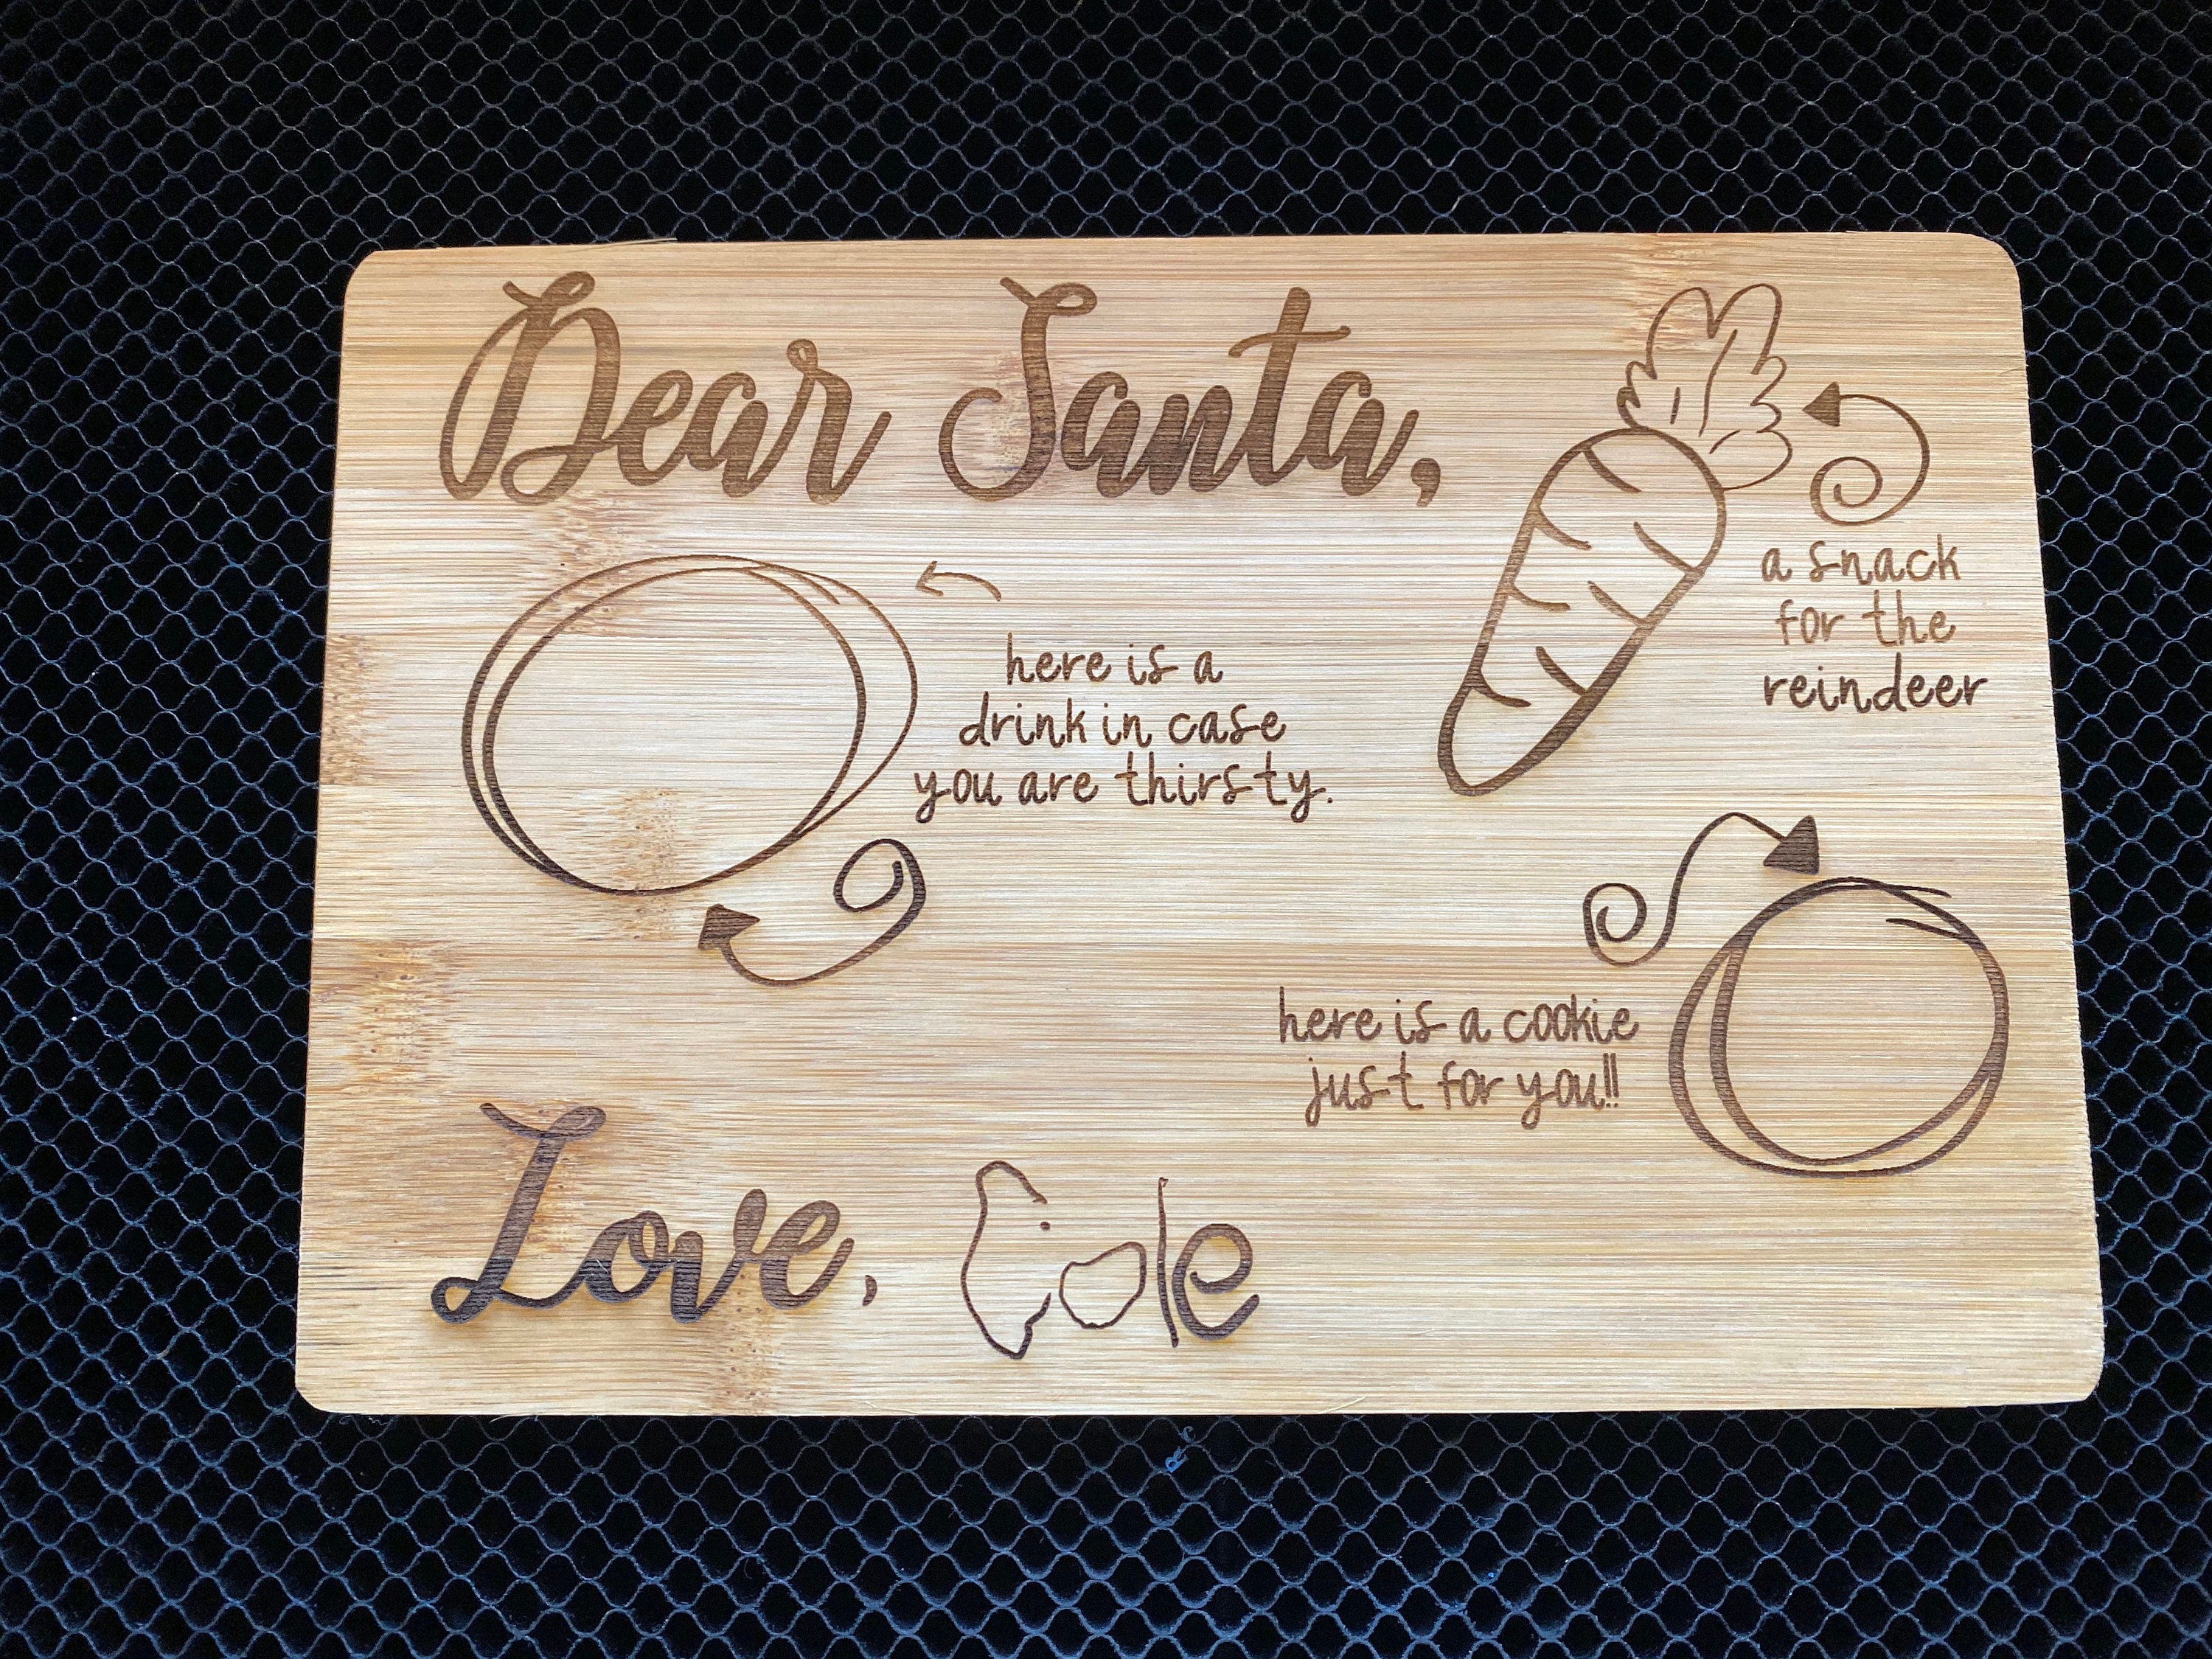 Dear Santa,
here is a
drink in case
you are thirsty.
a snack
for the
reindeer
here is a cookie
just for you!!
Love, Cole